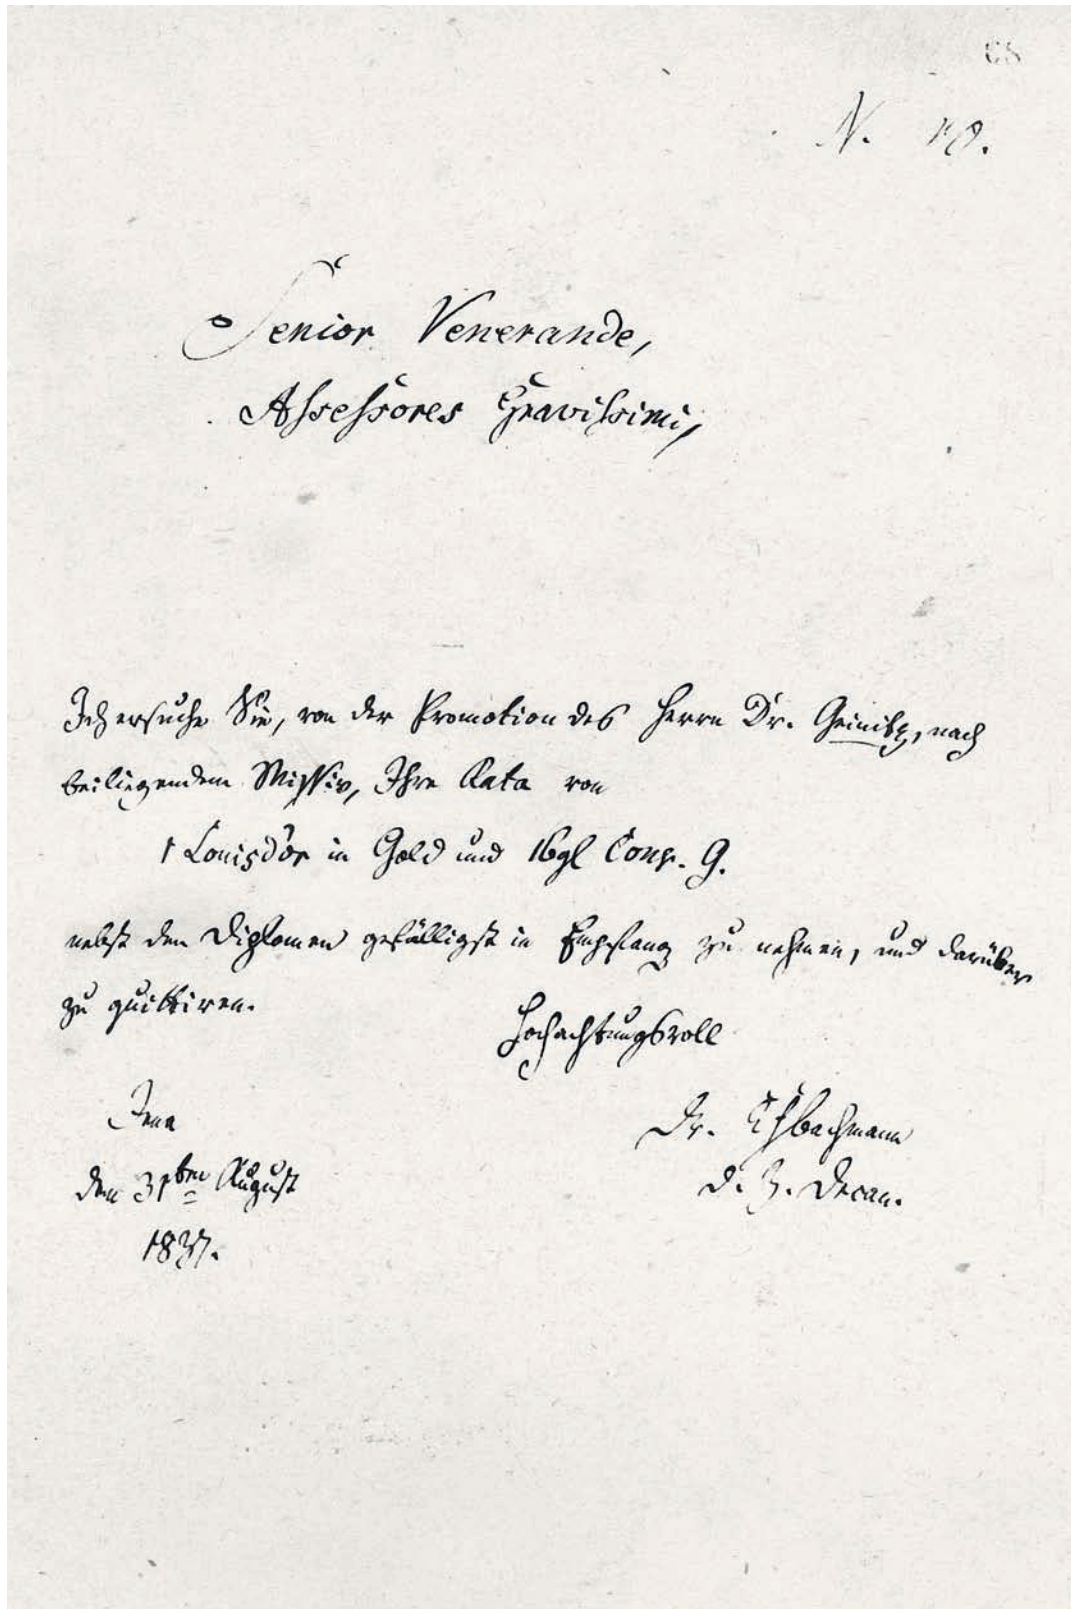 68
N. 10.
Senior Venerande,
Assessores Gravissimi,
Ich ersuche Sie, von der Promotion des Herrn Dr. Geinitz, nach
beiliegendem Missiv, Ihre Rata von
1 Louisd'or in Gold und 16gl Conv. G.
nebst den Diplomen gefälligst in Empfang zu nehmen, und darüber
zu quittiren.
Hochachtungsvoll
Jena
den 31ten August
1837.
Dr. Bachmann
d. Z. Decan.